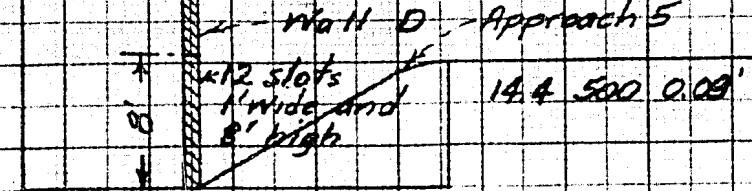 Wall D Approach 5
12 slots
1' wide and
8' high
8'
14.4 500 0.09'